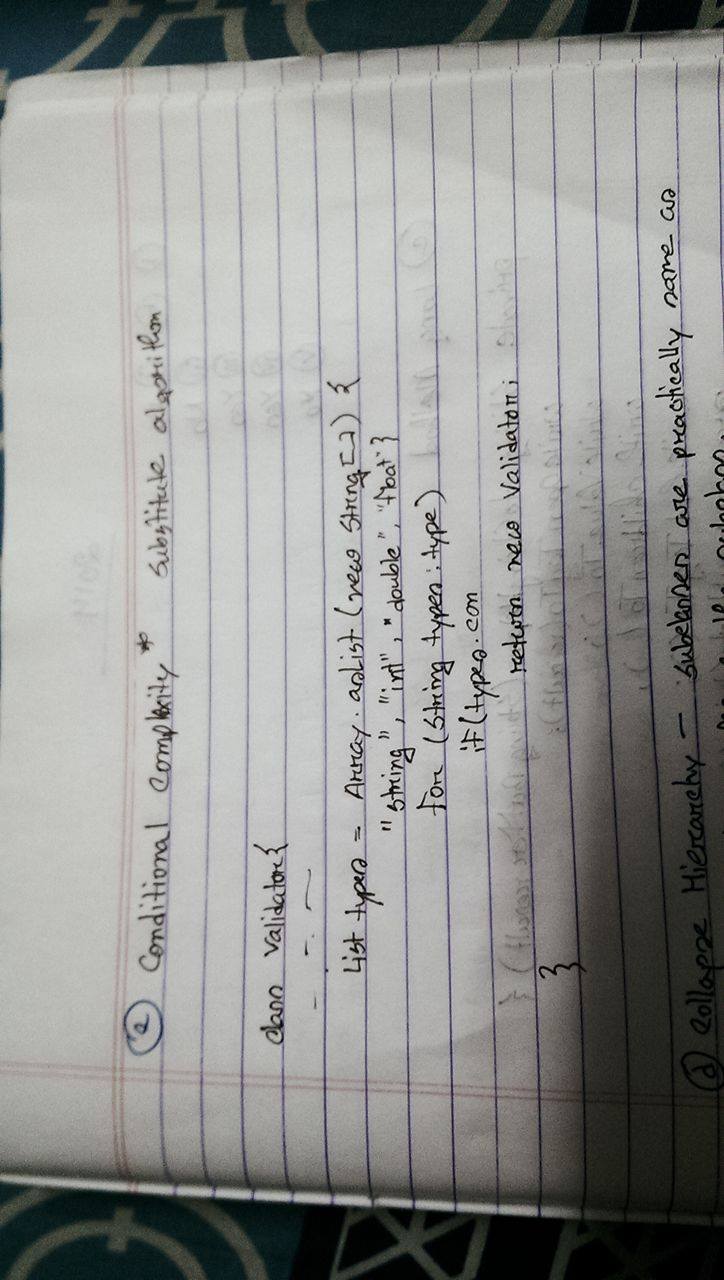 (a) Conditional Complexity * Substitute algorithm
class Validator {
List types = Array.asList (new String[]) {
"string", "int", "double", "float" }
for (String types : type)
if (types.con
return new Validator;
}
(d) Collapse Hierarchy — subclasses are practically same as